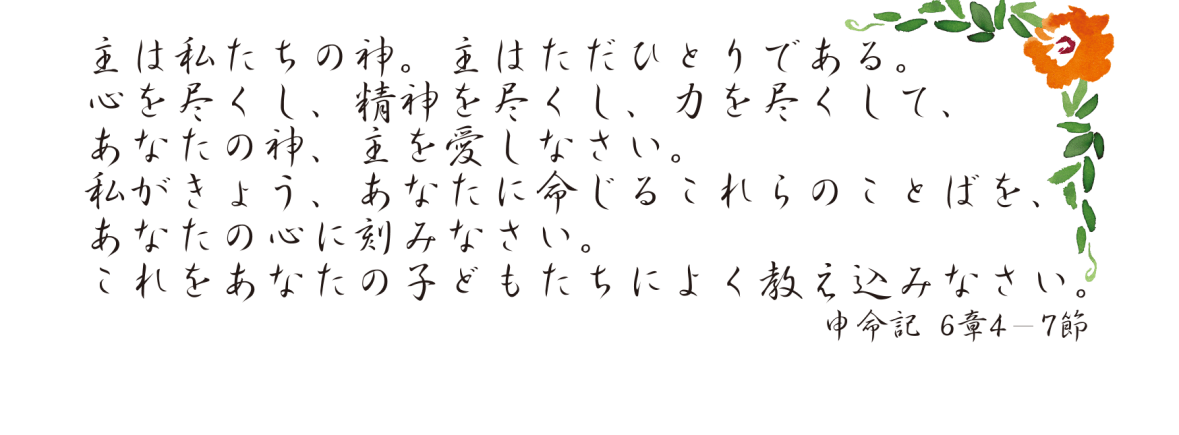 主は私たちの神。主はただひとりである。
心を尽くし、精神を尽くし、力を尽くして、
あなたの神、主を愛しなさい。
私がきょう、あなたに命じるこれらのことばを、
あなたの心に刻みなさい。
これをあなたの子どもたちによく教え込みなさい。
申命記 6章4－7節